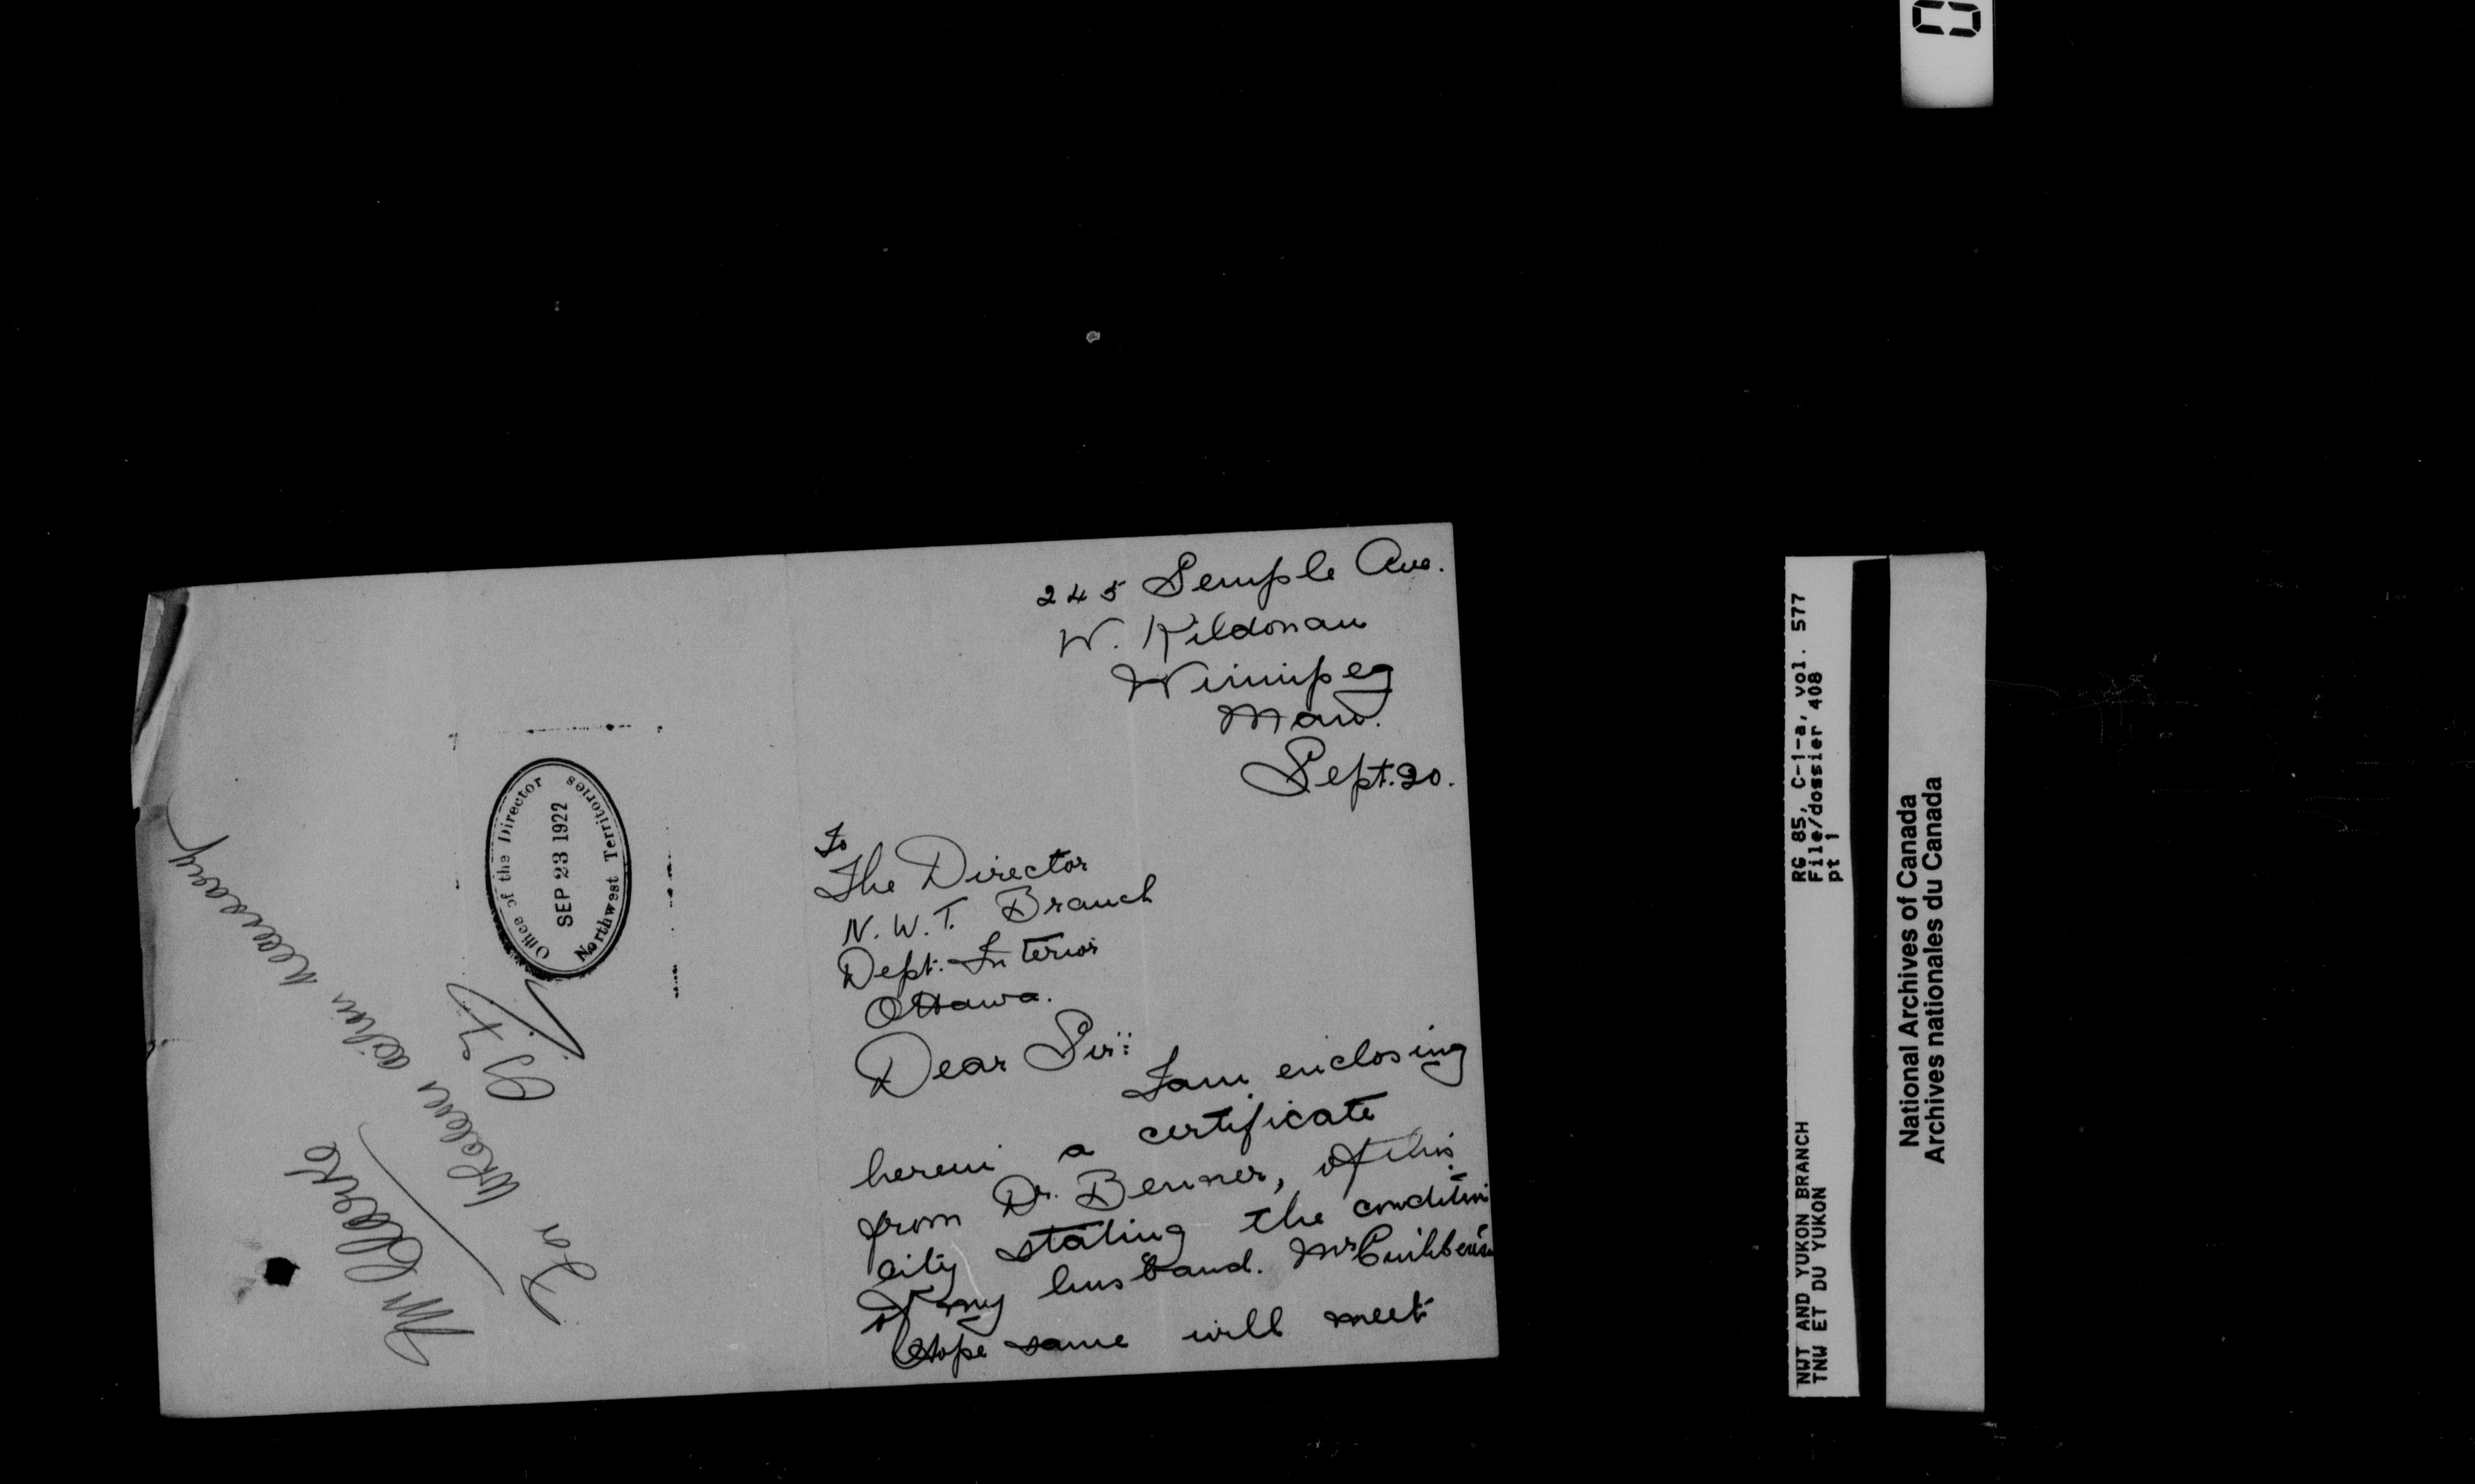 245 Semple Ave.
W. Kildonan
Winnipeg
Man.
Sept. 20.
To
The Director
N. W. T. Branch
Dept. Interior
Ottawa.
Dear Sir:
I am enclosing
herein a certificate
from Dr. Benner, of this
city stating the condition
of my husband. Mr
Hope same will meet
Office of the Director
SEP 23 1922
Northwest Territories
Mr Clarke
For whatever action necessary
RG 85, C-1-a, vol. 577
File/dossier 408
pt 1
NWT AND YUKON BRANCH
TNW ET DU YUKON
National Archives of Canada
Archives nationales du Canada